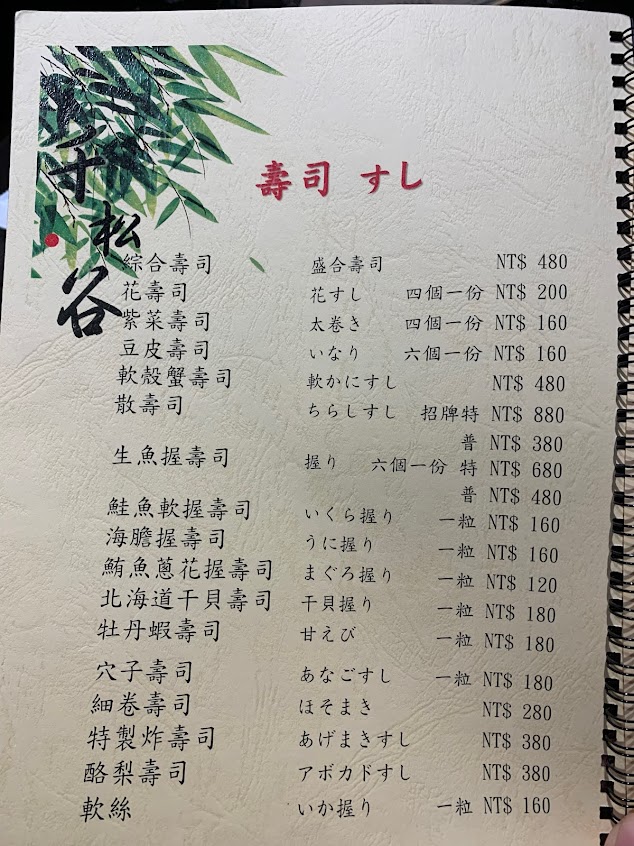 千松谷
壽司 すし
綜合壽司 盛合壽司 NT$ 480
花壽司 花すし 四個一份 NT$ 200
紫菜壽司 太巻き 四個一份 NT$ 160
豆皮壽司 いなり 六個一份 NT$ 160
軟殼蟹壽司 軟かにすし NT$ 480
散壽司 ちらしすし 招牌特 NT$ 880
普 NT$ 380
生魚握壽司 握り 六個一份 特 NT$ 680
普 NT$ 480
鮭魚軟握壽司 いくら握り 一粒 NT$ 160
海膽握壽司 うに握り 一粒 NT$ 160
鮪魚蔥花握壽司 まぐろ握り 一粒 NT$ 120
北海道干貝壽司 干貝握り 一粒 NT$ 180
牡丹蝦壽司 甘えび 一粒 NT$ 180
穴子壽司 あなごすし 一粒 NT$ 180
細卷壽司 ほそまき NT$ 280
特製炸壽司 あげまきすし NT$ 380
酪梨壽司 アボカドすし NT$ 380
軟絲 いか握り 一粒 NT$ 160